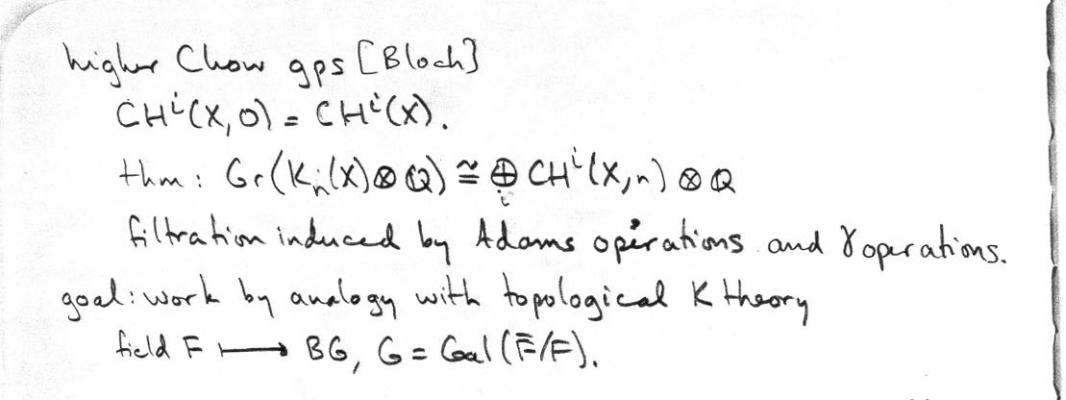 higher Chow gps [Bloch]
CHⁱ(X,0) = CHⁱ(X).
thm: Gr(Kₙ(X)⊗ℚ) ≅ ⊕ᵢ CHⁱ(X,n) ⊗ ℚ
filtration induced by Adams operations and γ operations.
goal: work by analogy with topological K theory
field F ⟼ BG, G = Gal(F̄/F).